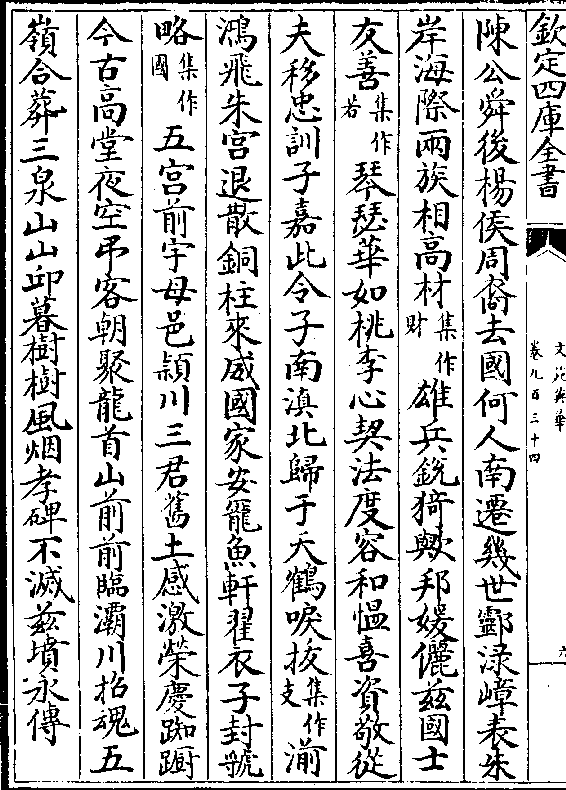 欽定四庫全書
文苑英華
卷九百三十四
六
陳公舜後楊侯周裔去國何人南遷幾世酃渌嶂表朱
岸海際兩族相高材集作財雄兵銳猗歟邦媛儷兹國士
友善集作若琴瑟華如桃李心契法度容和愠喜資敬從
夫移忠訓子嘉此令子南滇北歸于天鶴唳抜集作支湔
鴻飛朱宫退散銅柱來威國家安寵魚軒翟衣子封虢
略集作國五宫前宇母邑潁川三君舊土感激榮慶踟蹰
今古高堂夜空弔客朝聚龍首山前前臨灞川招魂五
嶺合葬三泉山山邱暮樹樹風烟孝碑不滅兹墳永傳